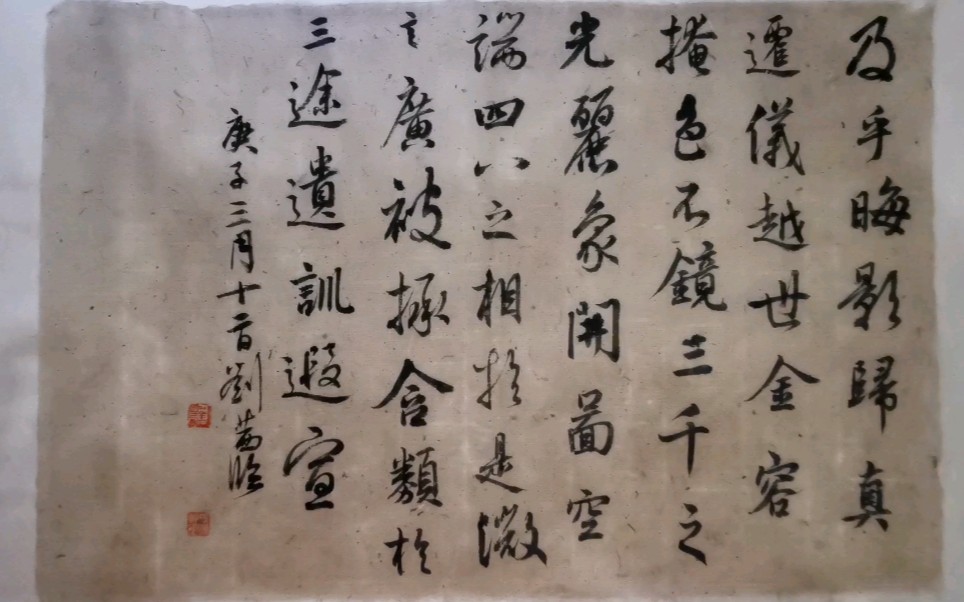 及乎晦影歸真
遷儀越世金容
掩色不鏡三千之
光麗象開圖空
端四八之相於是微
言廣被拯含類於
三途遺訓遐宣
庚子三月十二日劉臨